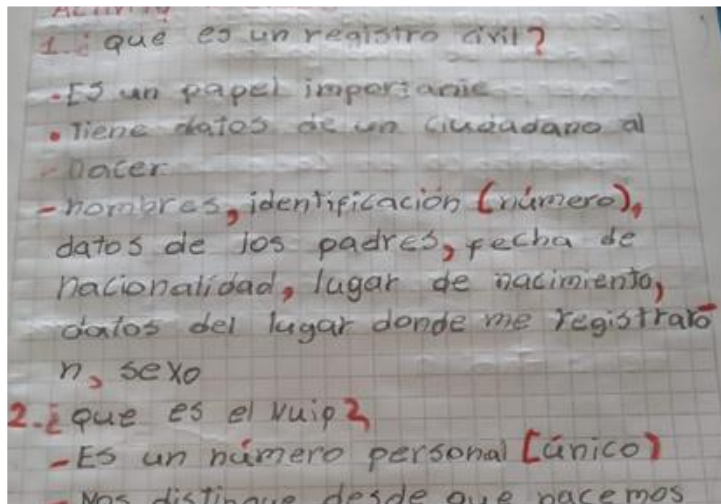 1. ¿que es un registro civil?
• Es un papel importante
• Tiene datos de un ciudadano al
nacer
- nombres, identificación (número),
datos de los padres, fecha de
nacionalidad, lugar de nacimiento,
datos del lugar donde me registraro
n, sexo
2. ¿que es el nuip?
- Es un número personal (único)
- Nos distingue desde que nacemos